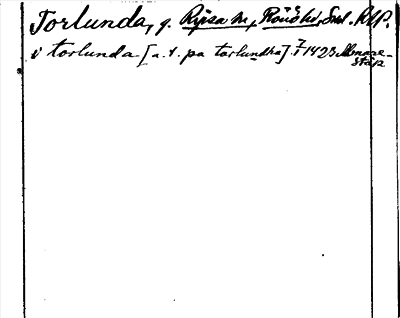 Torlunda, g. Rysa sn, Rönö hd, Söd. RAP.
i torlunda [a. t. pa torlundha] 7/1 1423 Almare-
stäp